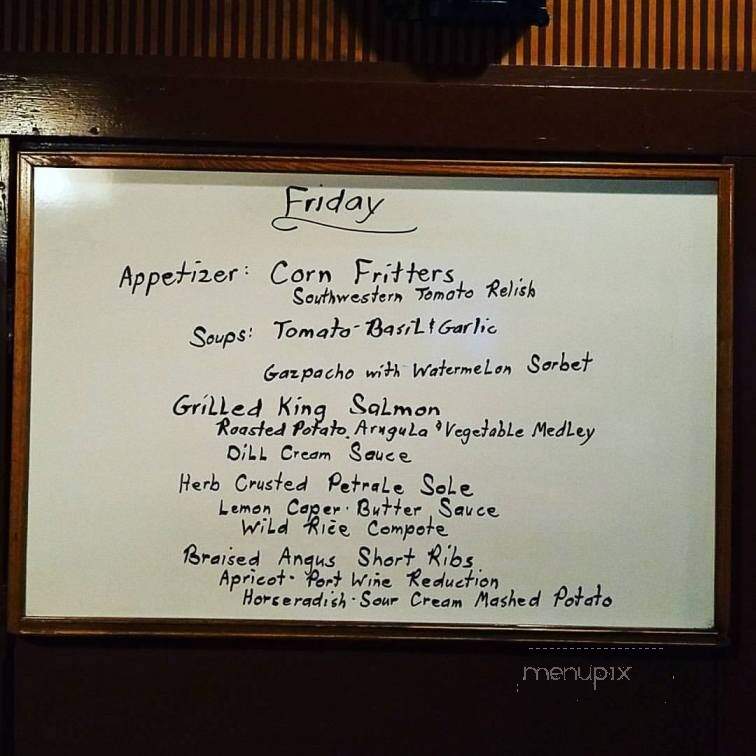 Friday
Appetizer: Corn Fritters
Southwestern Tomato Relish
Soups: Tomato-Basil & Garlic
Gazpacho with Watermelon Sorbet
Grilled King Salmon
Roasted Potato, Arugula & Vegetable Medley
Dill Cream Sauce
Herb Crusted Petrale Sole
Lemon Caper-Butter Sauce
Wild Rice Compote
Braised Angus Short Ribs
Apricot-Port Wine Reduction
Horseradish-Sour Cream Mashed Potato
menupix